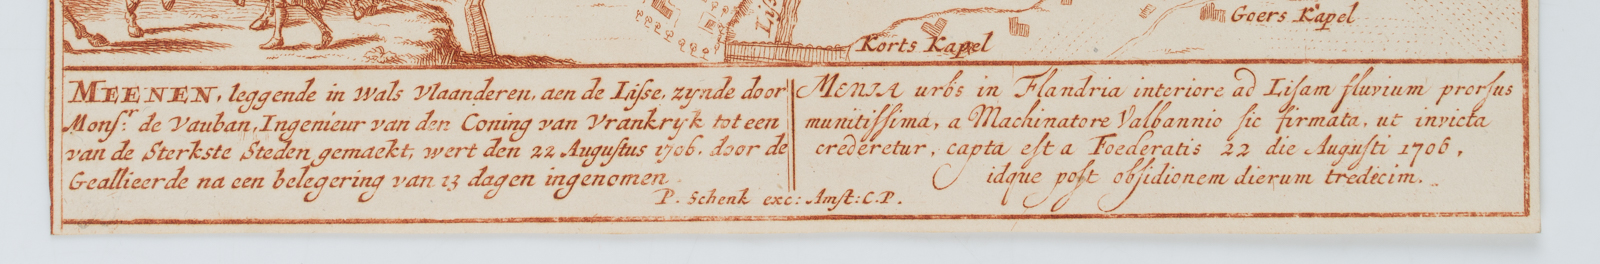 Goers Kapel
Lis
Korts Kapel
MEENEN, leggende in Wals Vlaanderen, aen de Lisse, zynde door
Monsr. de Vauban, Ingenieur van den Coning van Vrankryk tot een
van de Sterkste Steden gemaekt, wert den 22 Augustus 1706. door de
Geallieerde na een belegering van 13 dagen ingenomen
MENIA urbs in Flandria interiore ad Lisam fluvium prorsus
munitissima, a Machinatore Valbannio sic firmata, ut invicta
crederetur, capta est a Foederatis 22 die Augusti 1706,
idque post obsidionem dierum tredecim.
P. Schenk exc: Amst: C.P.